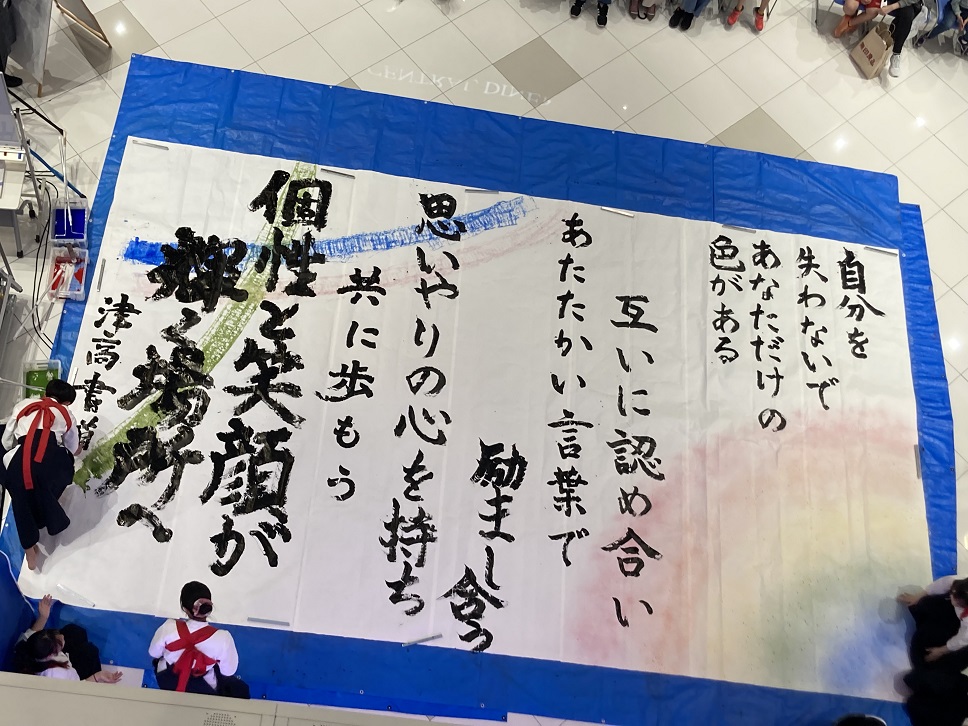 自分を
失わないで
あなただけの
色がある
互いに認め合い
あたたかい言葉で
励まし合う
思いやりの心を持ち
共に歩もう
個性と笑顔が
輝く場所へ
津高書道
CENTRAL DINER